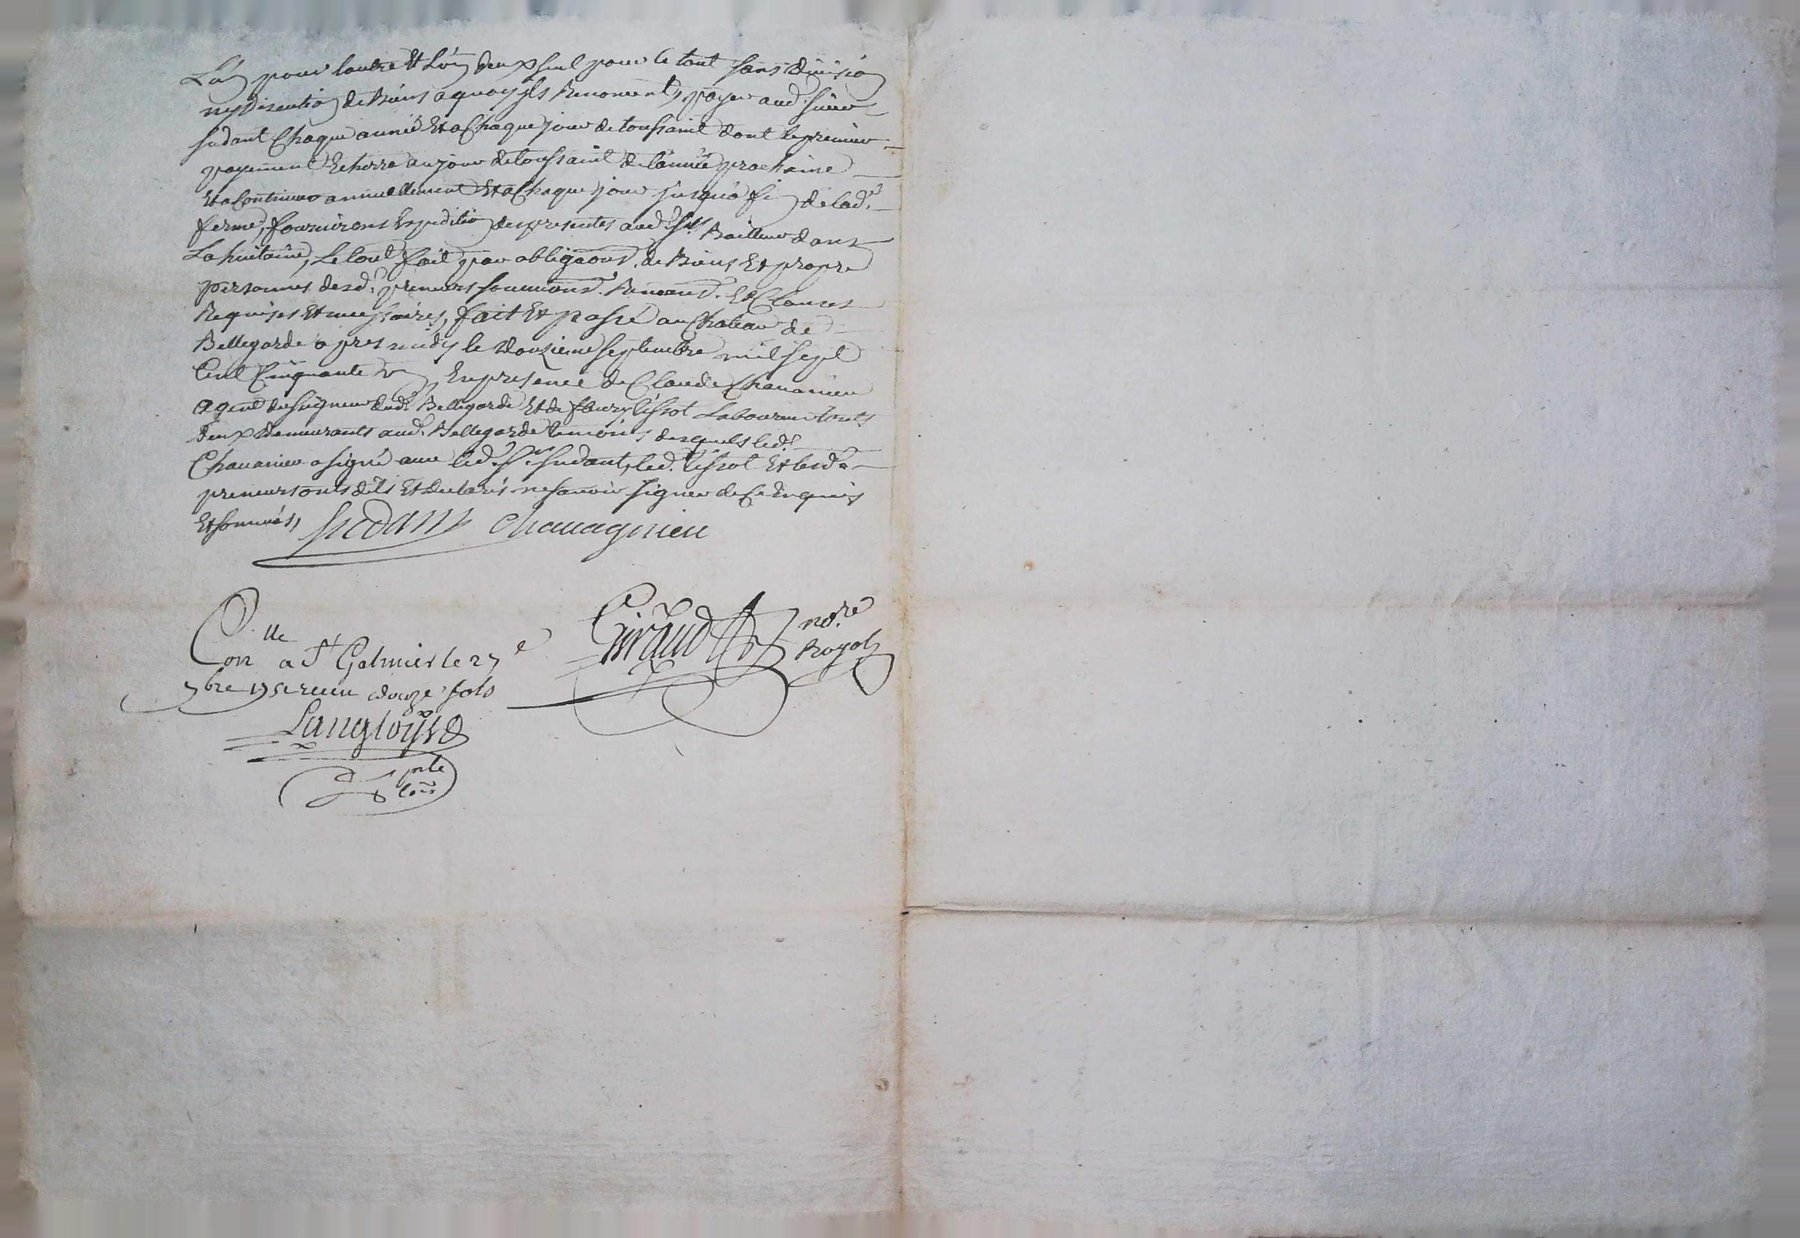 L'un pour l'autre et l'un d'eux seul pour le tout sans division
ny discution de Biens a quoy ils Renoncent, payer aud. sieur
sudant Chaque année et a Chaque jour de toussaint dont le premier
payement Echerra au jour de toussaint de l'année prochaine
Et a Continuer annuellement Et a Chaque jour jusqu'a fin de lad.
ferme, fourniront Expedition des presentes aud. Sr. Bailleur dans
La huitaine, Le tout fait par obligaons. de Biens Et propre
personnes desd. preneurs soumions. Renonons. Et Clauses
Requises Et necessaires, fait Et passé au Chateau de
Bellegarde apres midy le douzieme septembre mil sept
Cent Cinquante un En presence de Claude Chavanieu
agent du seigneur dud. Bellegarde Et de fleury tissot Laboureur touts
deux demeurants aud. Bellegarde temoins desquels led.
Chavanieu a signé avec led. Sr. sudant, led. tissot Et lesd.
preneurs onts dits Et declarés ne savoir signer de Ce Enquis
Et sommés,
Sudant Chavagnieu
Giraud nore. Royal
Conlle a St Galmier le 27e
7bre 1751 receu douze sols
Langloys